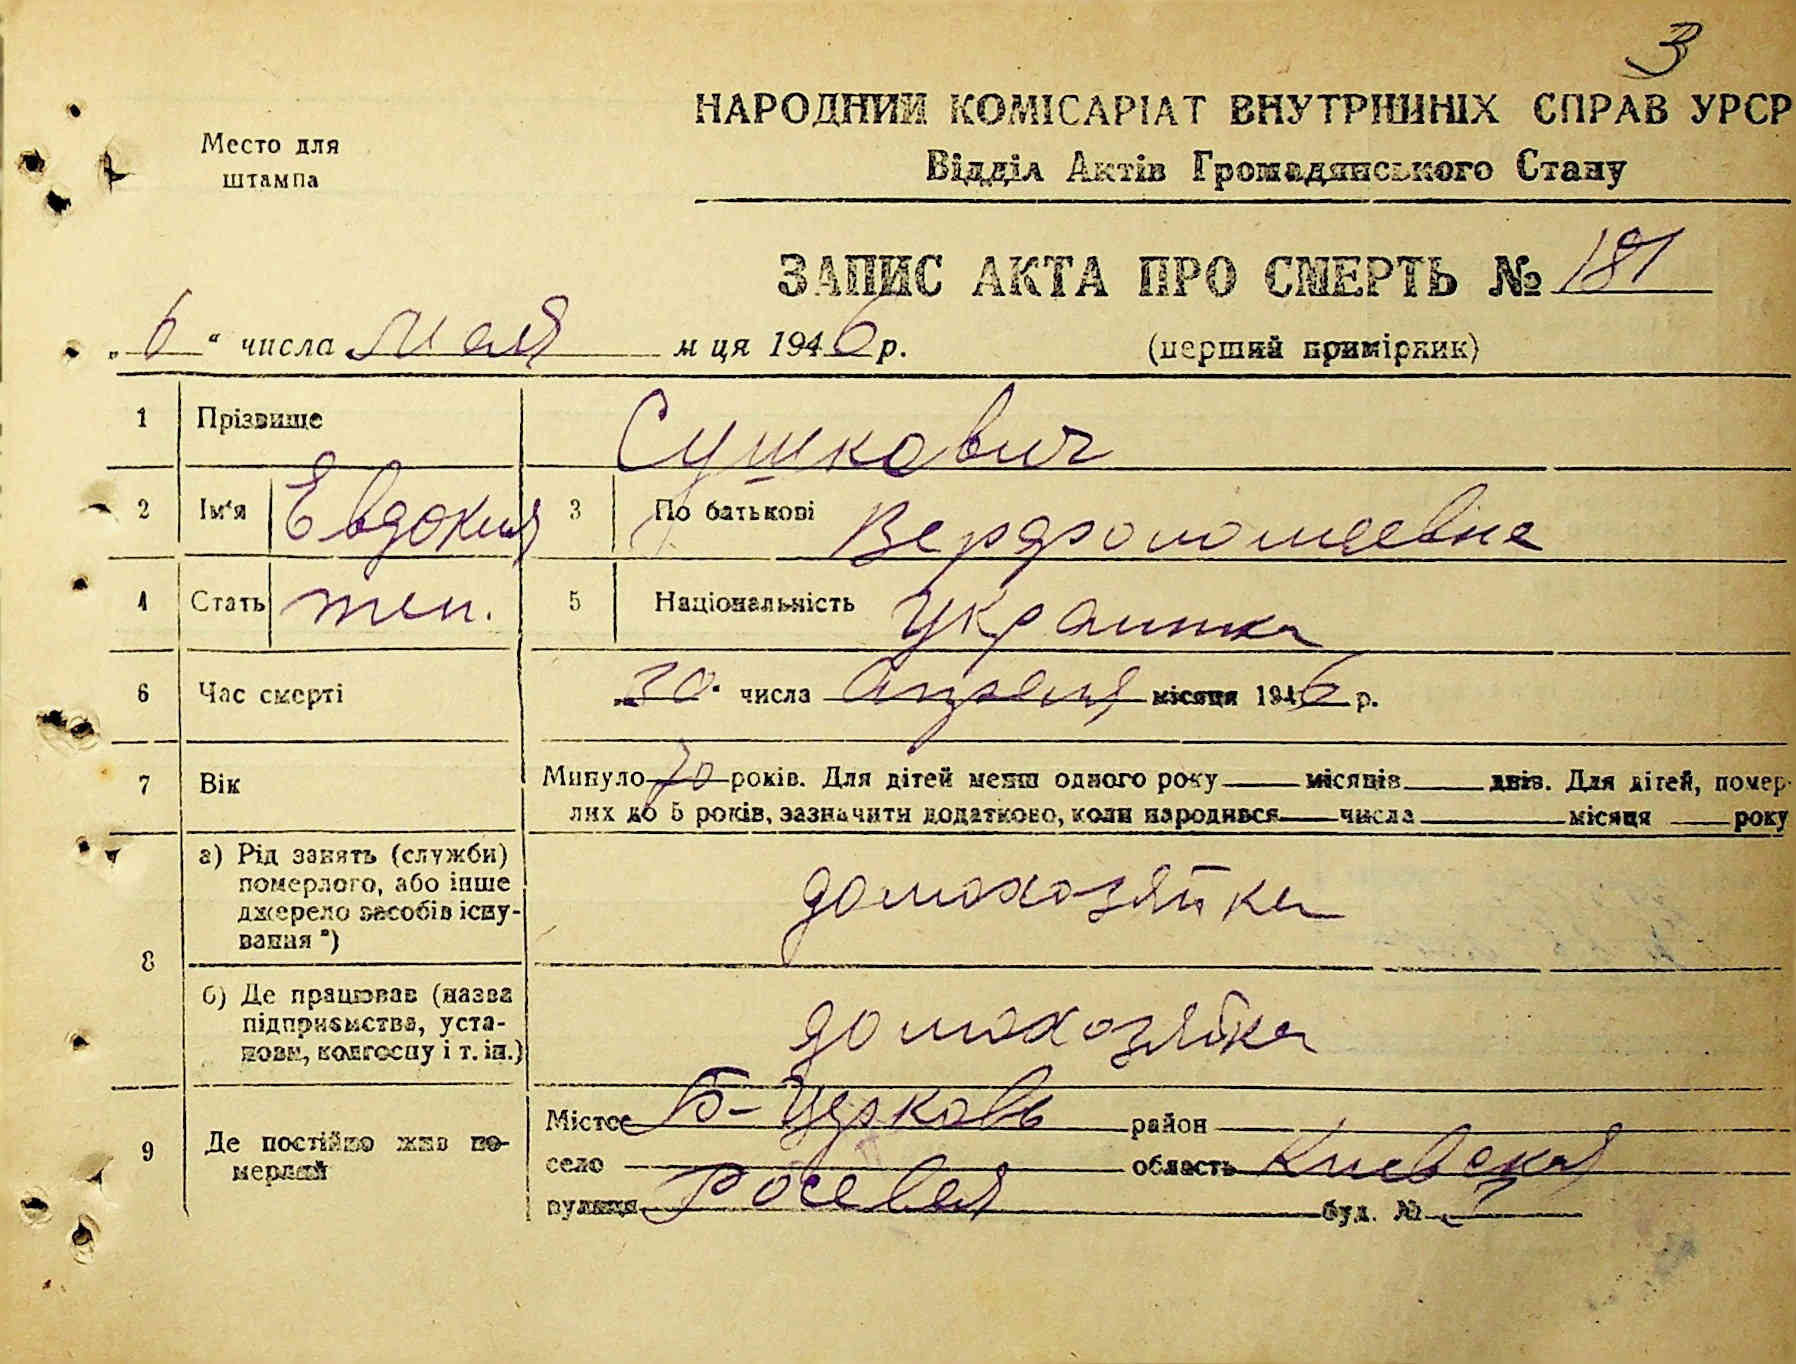 3
НАРОДНИЙ КОМІСАРІАТ ВНУТРІШНІХ СПРАВ УРСР
Место для
штампа
Відділ Актів Громадянського Стану
ЗАПИС АКТА ПРО СМЕРТЬ № 181
„ 6 “ числа мая м ця 1946 р. (перший примірник)
1 Прізвище Сушкович
2 Ім'я Евдокия 3 По батькові
4 Стать жен. 5 Національність украинка
6 Час смерті „30" числа Апреля місяця 1946 р.
7 Вік Минуло 70 років. Для дітей менш одного року місяців днів. Для дітей, помер-
лих до 5 років, зазначити додатково, коли народився числа місяця року
8 а) Рід занять (служби)
померлого, або інше
джерело засобів існу-
вання *) домохозяйка
б) Де працював (назва
підприємства, уста-
нови, колгоспу і т. ін.) домохозяйка
9 Де постійно жив по-
мерлий
Місто Б-Церковь район
село область Киевская
вулиця Росевая буд. №